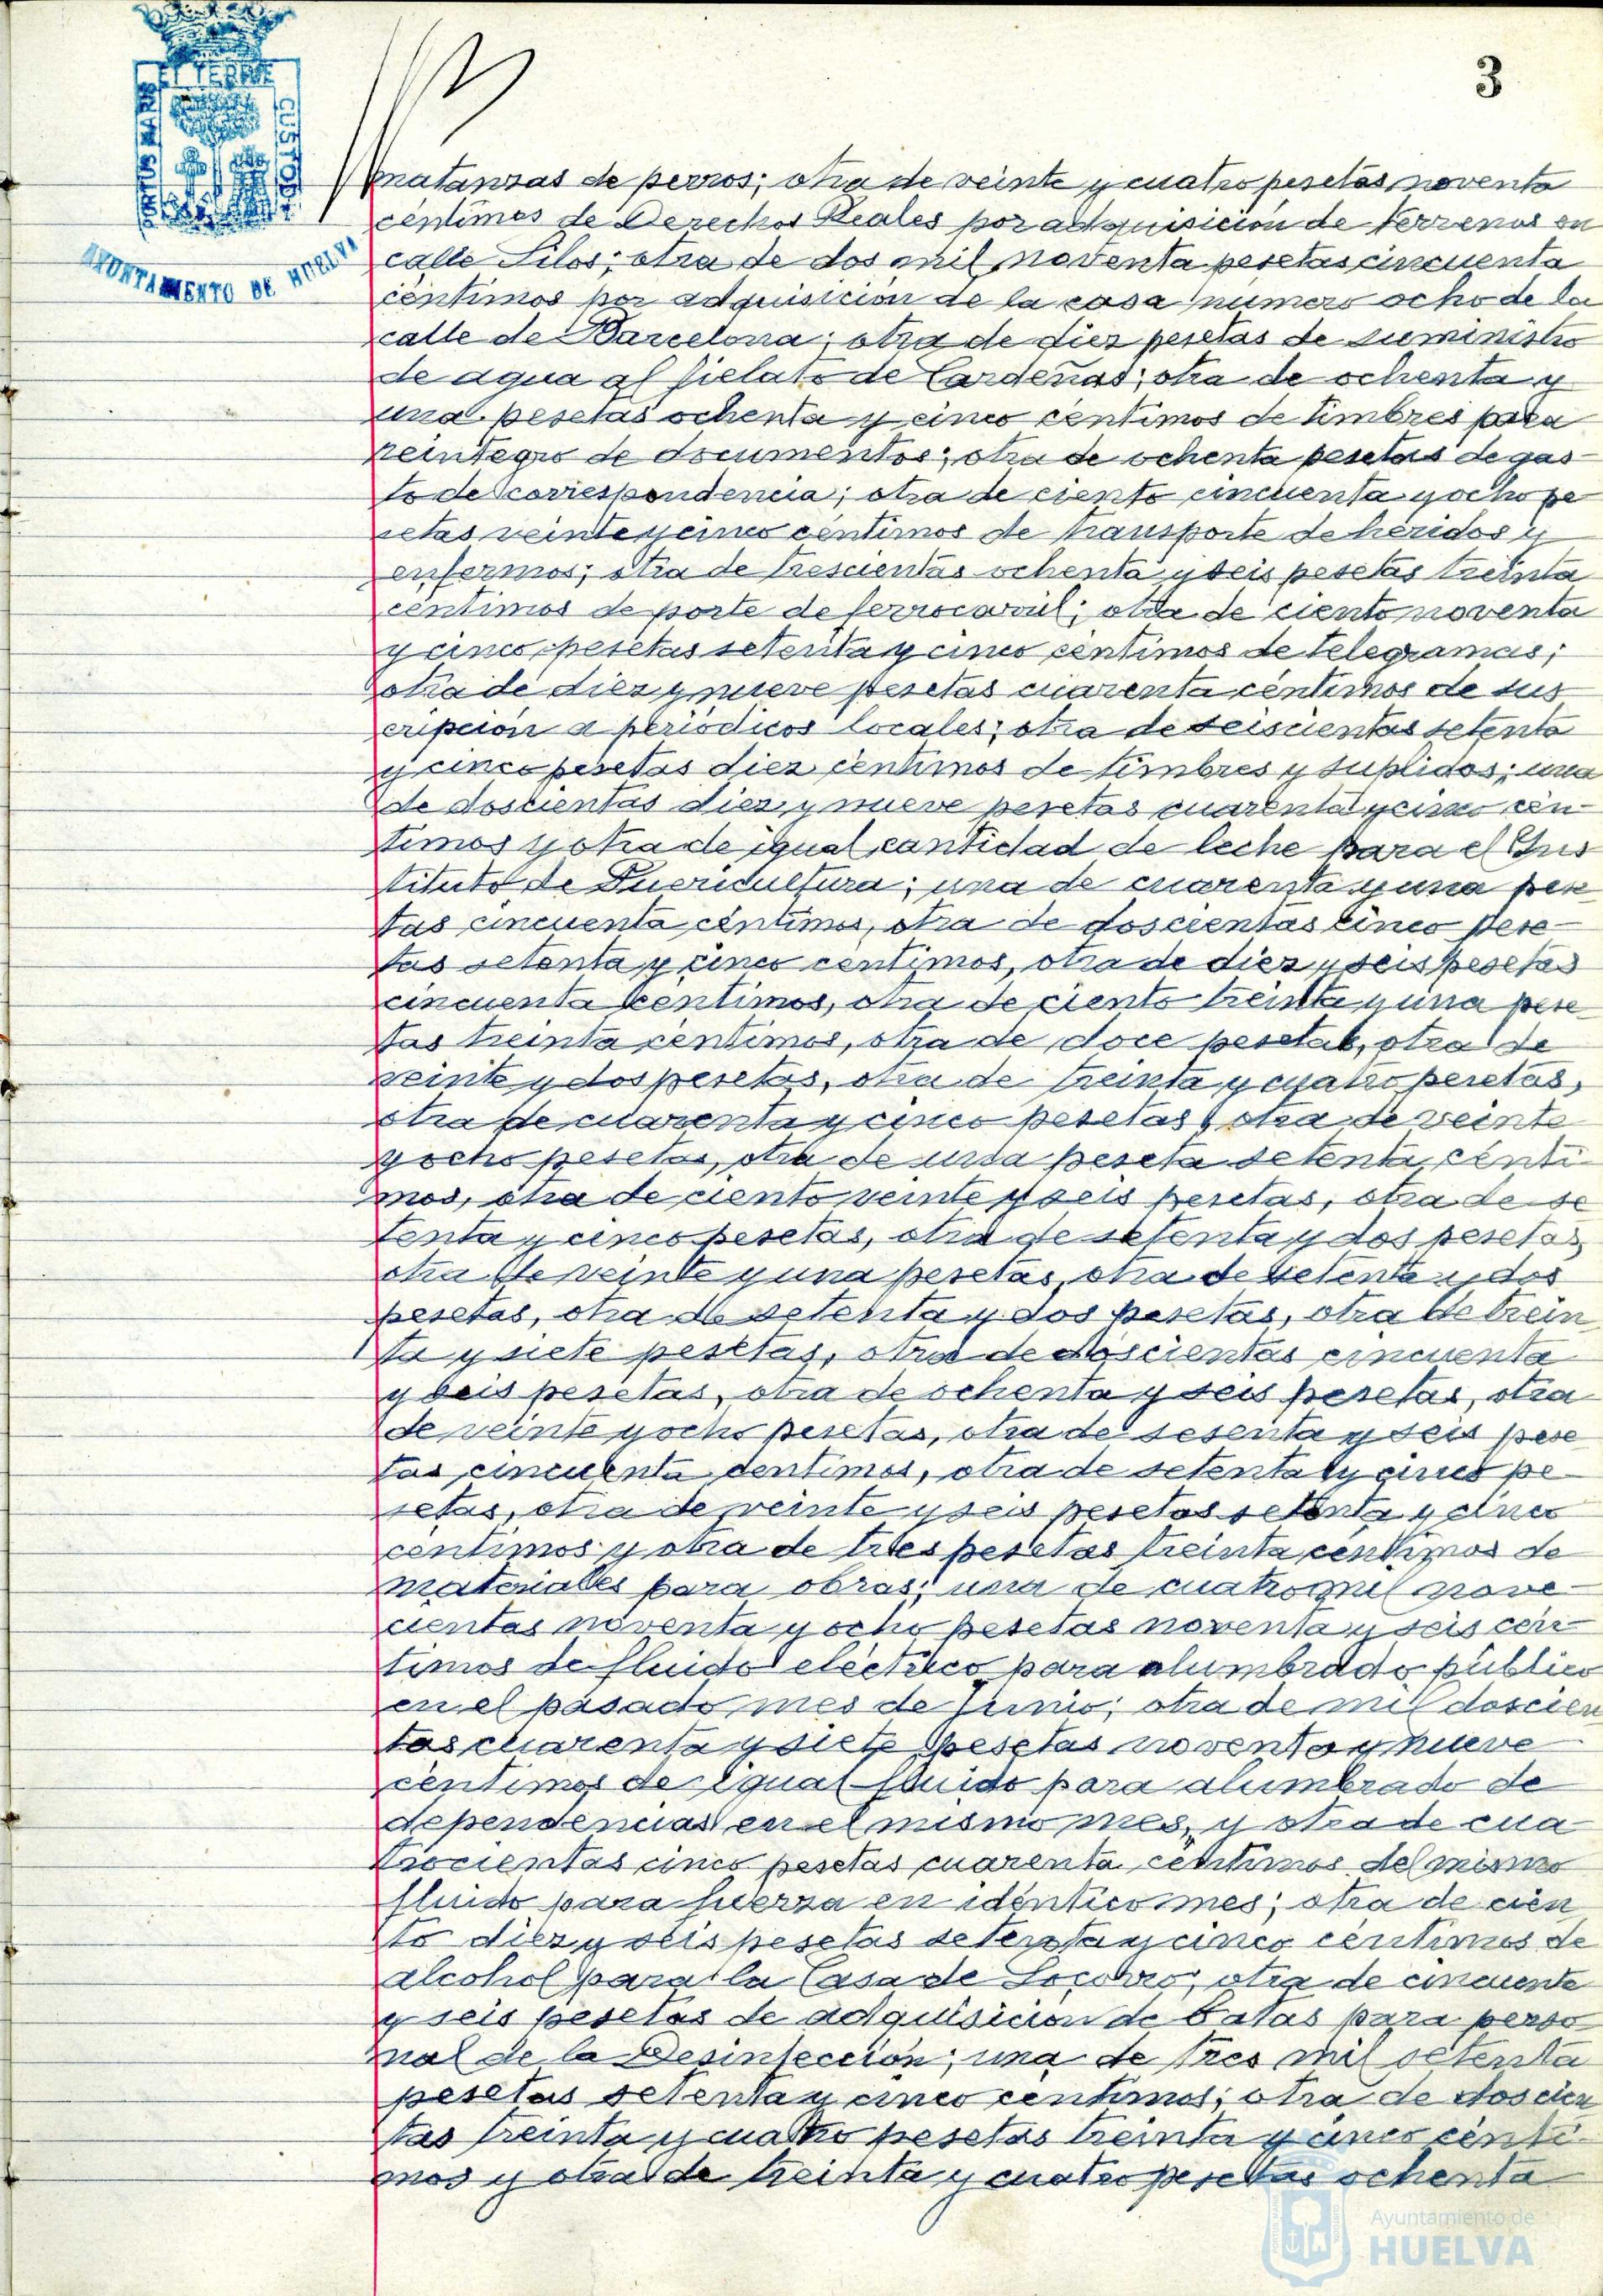 3
PORTUS MARIS ET TERRÆ CUSTODIA
AYUNTAMIENTO DE HUELVA
matanzas de perros; otra de veinte y cuatro pesetas noventa
céntimos de Derechos Reales por adquisición de terrenos en
calle Silos; otra de dos mil noventa pesetas cincuenta
céntimos por adquisición de la casa número ocho de la
calle de Barcelona; otra de diez pesetas de suministro
de agua al fielato de Cardeñas; otra de ochenta y
una pesetas ochenta y cinco céntimos de timbres para
reintegro de documentos; otra de ochenta pesetas de gas-
to de correspondencia; otra de ciento cincuenta y ocho pe
setas veinte y cinco céntimos de transporte de heridos y
enfermos; otra de trescientas ochenta y seis pesetas treinta
céntimos de porte de ferrocarril; otra de ciento noventa
y cinco pesetas setenta y cinco céntimos de telegramas;
otra de diez y nueve pesetas cuarenta céntimos de sus
cripción a periódicos locales; otra de seiscientas setenta
y cinco pesetas diez céntimos de timbres y suplidos; una
de doscientas diez y nueve pesetas cuarenta y cinco cén-
timos y otra de igual cantidad de leche para el Ins
tituto de Puericultura; una de cuarenta y una pese
tas cincuenta céntimos, otra de doscientas cinco pese-
tas setenta y cinco centimos, otra de diez y seis pesetas
cincuenta céntimos, otra de ciento treinta y una pese
tas treinta céntimos, otra de doce pesetas, otra de
veinte y dos pesetas, otra de treinta y cuatro pesetas,
otra de cuarenta y cinco pesetas, otra de veinte
y ocho pesetas, otra de una peseta setenta cénti
mos, otra de ciento veinte y seis pesetas, otra de se
tenta y cinco pesetas, otra de setenta y dos pesetas,
otra de veinte y una pesetas, otra de setenta y dos
pesetas, otra de setenta y dos pesetas, otra de trein
ta y siete pesetas, otra de doscientas cincuenta
y seis pesetas, otra de ochenta y seis pesetas, otra
de veinte y ocho pesetas, otra de sesenta y seis pese
tas cincuenta centimos, otra de setenta y cinco pe
setas, otra de veinte y seis pesetas setenta y cinco
céntimos y otra de tres pesetas treinta céntimos de
materiales para obras; una de cuatro mil nove-
cientas noventa y ocho pesetas noventa y seis cén-
timos de fluido eléctrico para alumbrado público
en el pasado mes de Junio; otra de mil doscien
tas cuarenta y siete pesetas noventa y nueve
céntimos de igual fluido para alumbrado de
dependencias en el mismo mes, y otra de cua
trocientas cinco pesetas cuarenta céntimos del mismo
fluido para fuerza en idéntico mes; otra de cien
to diez y seis pesetas setenta y cinco céntimos de
alcohol para la Casa de Socorro; otra de cincuenta
y seis pesetas de adquisición de batas para perso
nal de la Desinfección; una de tres mil setenta
pesetas setenta y cinco céntimos; otra de doscien
tas treinta y cuatro pesetas treinta y cinco cénti-
mos y otra de treinta y cuatro pesetas ochenta
Ayuntamiento de
HUELVA